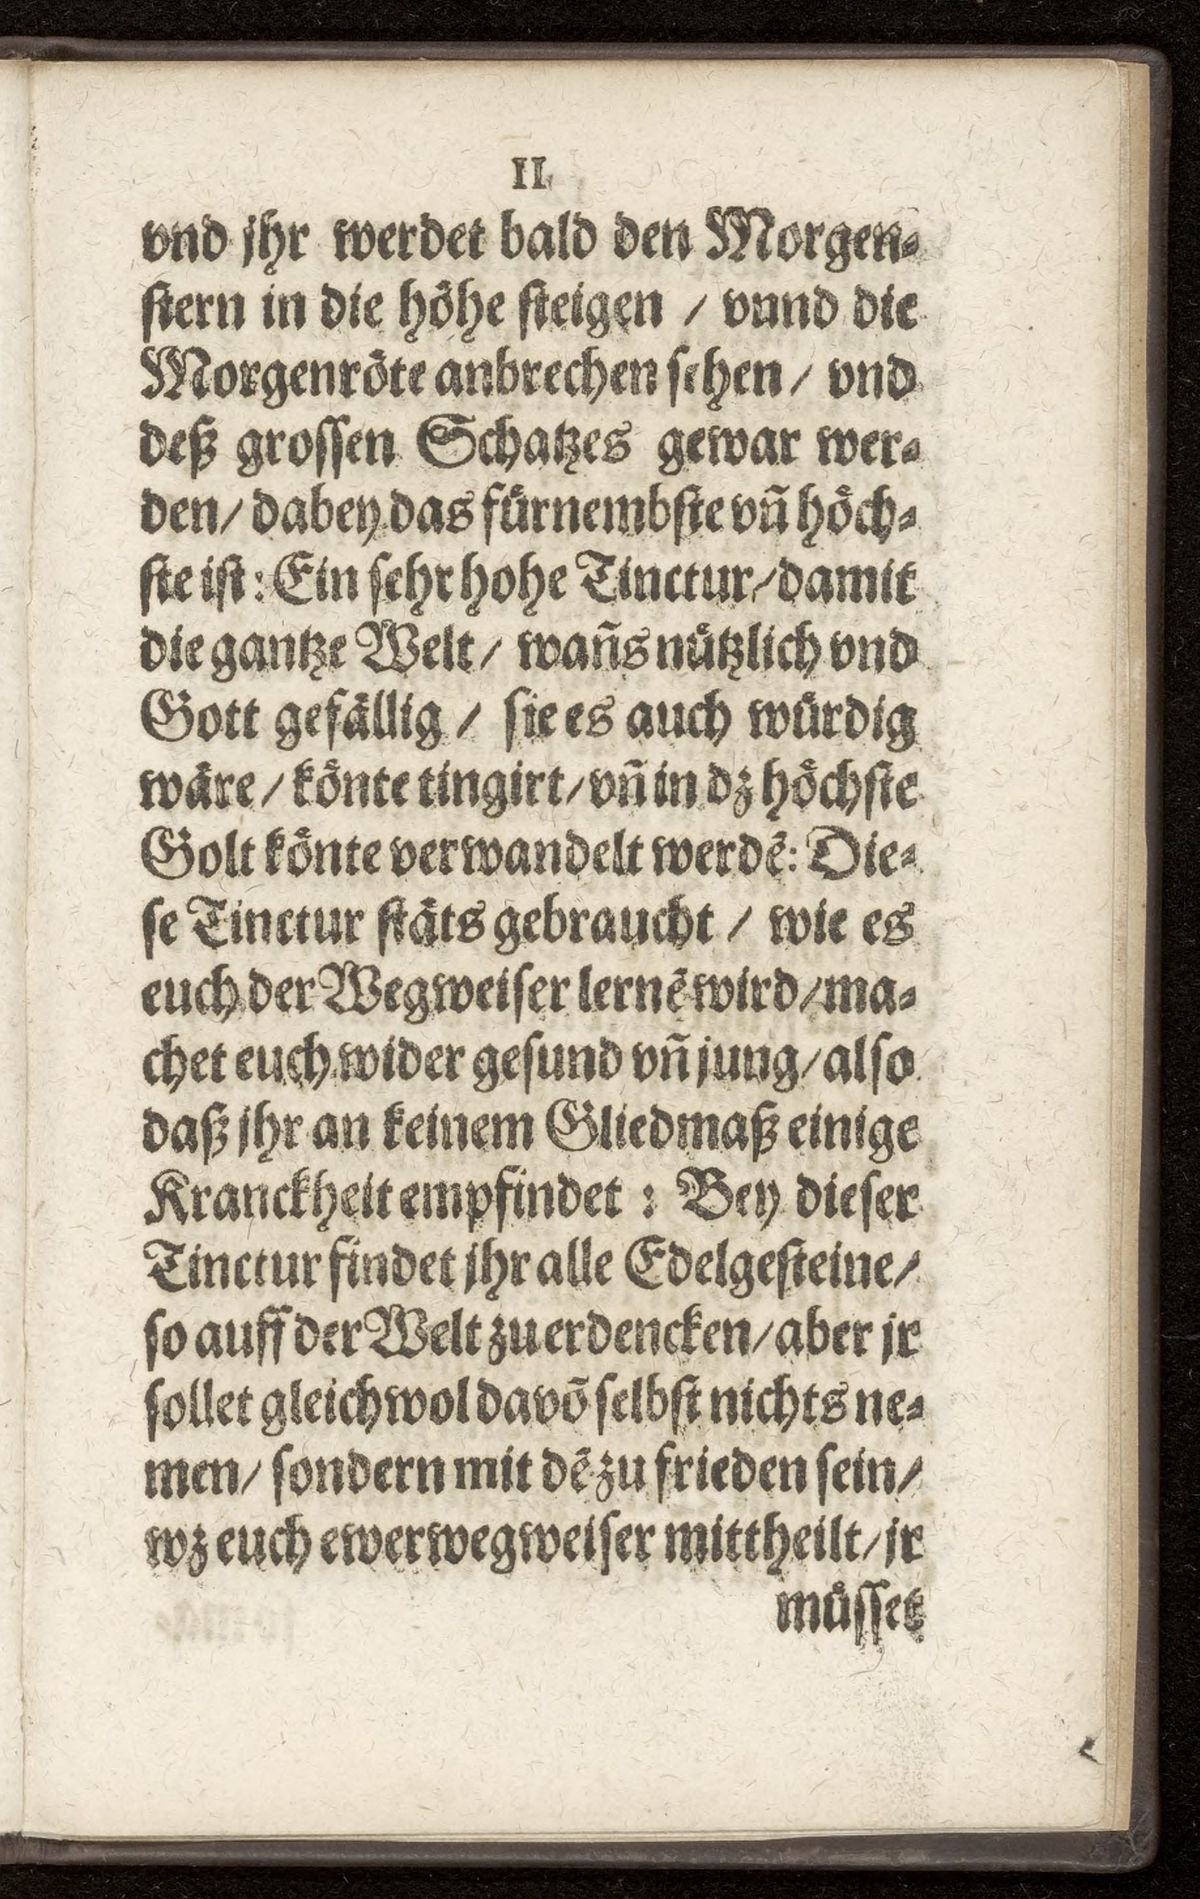 11
vnd jhr werdet bald den Morgen-
stern in die höhe steigen / vnnd die
Morgenröte anbrechen sehen / vnd
deß grossen Schatzes gewar wer-
den / dabey das fürnembste vñ höch-
ste ist: Ein sehr hohe Tinctur / damit
die gantze Welt / wañs nützlich vnd
Gott gefällig / sie es auch würdig
wäre / könte tingirt / vñ in dz höchste
Golt könte verwandelt werdẽ: Die-
se Tinctur stäts gebraucht / wie es
euch der Wegweiser lernẽ wird / ma-
chet euch wider gesund vñ jung / also
daß jhr an keinem Gliedmaß einige
Kranckheit empfindet : Bey dieser
Tinctur findet jhr alle Edelgesteine /
so auff der Welt zu erdencken / aber jr
sollet gleichwol davõ selbst nichts ne-
men / sondern mit dẽ zu frieden sein /
wz euch ewer wegweiser mittheilt / jr
müsset